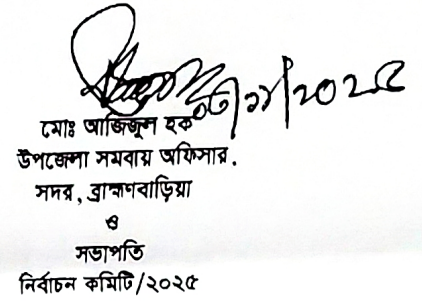 ০৬/১১/২০২৫
মোঃ আজিজুল হক
উপজেলা সমবায় অফিসার.
সদর, ব্রাহ্মণবাড়িয়া
ও
সভাপতি
নির্বাচন কমিটি/২০২৫